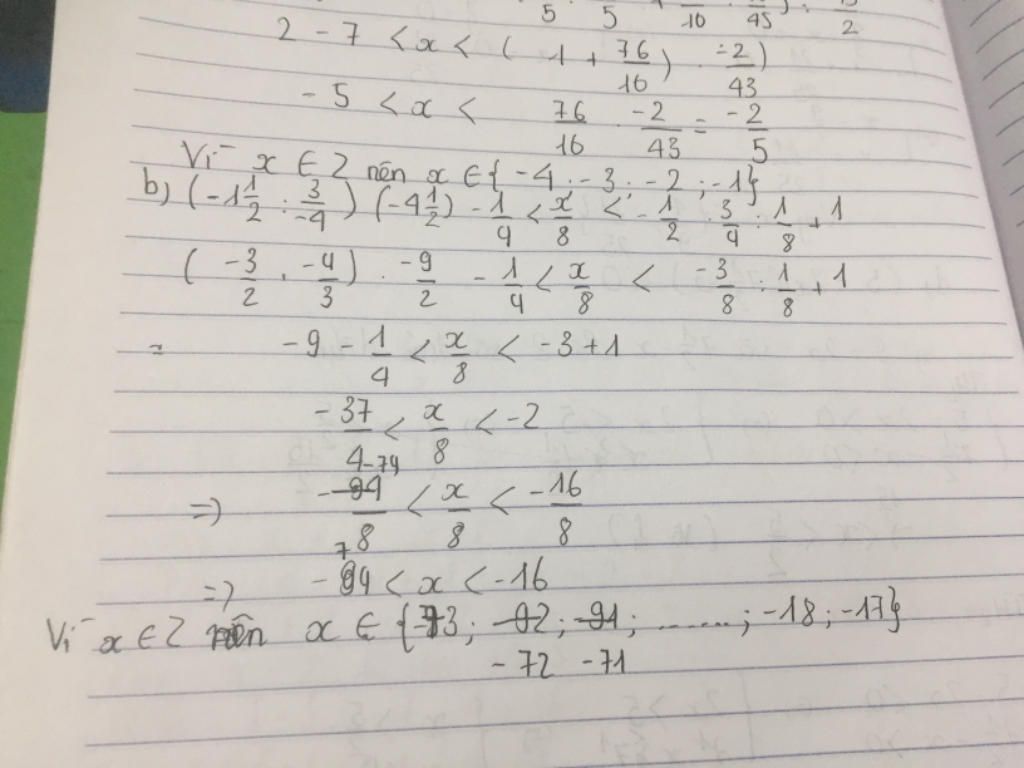 5 5 10 45 2
2 - 7 < x < ( 1 + 76/16 ) . -2/43 )
- 5 < x < 76/16 . -2/43 = -2/5
Vì x ∈ Z nên x ∈ { -4 ; -3 ; -2 ; -1 }
b) (-1 1/2 : 3/-4) (-4 1/2) - 1/4 < x/8 < -1/2 . 3/4 : 1/8 + 1
( -3/2 . -4/3 ) . -9/2 - 1/4 < x/8 < -3/8 : 1/8 + 1
= -9 - 1/4 < x/8 < -3 + 1
-37/4 < x/8 < -2
=> -74/8 < x/8 < -16/8
=> -74 < x < -16
Vì x ∈ Z nên x ∈ { -73 ; -72 ; -71 ; ....... ; -18 ; -17 }